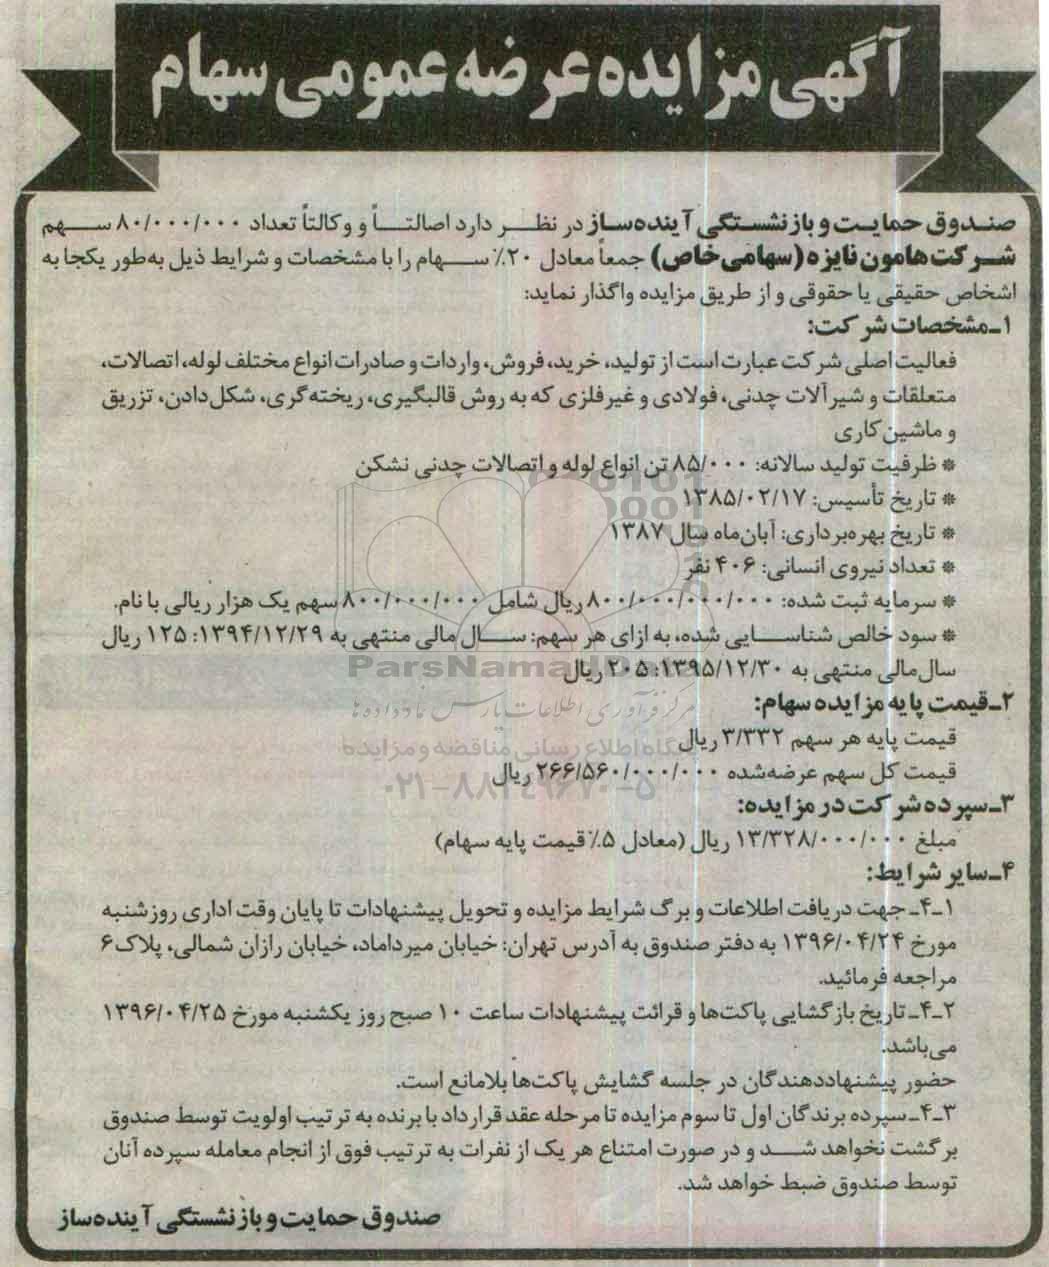 آگهی مزایده عرضه عمومی سهام
صندوق حمایت و بازنشستگی آینده‌ساز در نظر دارد اصالتاً و وکالتاً تعداد ۸۰/۰۰۰/۰۰۰ سهم
شرکت هامون نایزه (سهامی خاص) جمعاً معادل ۲۰٪ سهام را با مشخصات و شرایط ذیل به‌طور یکجا به
اشخاص حقیقی یا حقوقی و از طریق مزایده واگذار نماید:
۱ـ مشخصات شرکت:
فعالیت اصلی شرکت عبارت است از تولید، خرید، فروش، واردات و صادرات انواع مختلف لوله، اتصالات،
متعلقات و شیرآلات چدنی، فولادی و غیرفلزی که به روش قالبگیری، ریخته‌گری، شکل‌دادن، تزریق
و ماشین‌کاری
* ظرفیت تولید سالانه: ۸۵/۰۰۰ تن انواع لوله و اتصالات چدنی نشکن
* تاریخ تأسیس: ۱۳۸۵/۰۲/۱۷
* تاریخ بهره‌برداری: آبان‌ماه سال ۱۳۸۷
* تعداد نیروی انسانی: ۴۰۶ نفر
* سرمایه ثبت شده: ۸۰۰/۰۰۰/۰۰۰/۰۰۰ ریال شامل ۸۰۰/۰۰۰/۰۰۰ سهم یک هزار ریالی با نام.
* سود خالص شناسایی شده، به ازای هر سهم: سال مالی منتهی به ۱۳۹۴/۱۲/۲۹: ۱۲۵ ریال
سال‌مالی منتهی به ۱۳۹۵/۱۲/۳۰: ۲۰۵ ریال
ParsNamadData
مرکز فرآوری اطلاعات پارس نماد داده‌ها
۲ـ قیمت پایه مزایده سهام:
قیمت پایه هر سهم ۳/۳۳۲ ریال
پایگاه اطلاع رسانی مناقصه و مزایده
قیمت کل سهم عرضه‌شده ۲۶۶/۵۶۰/۰۰۰/۰۰۰ ریال
۰۲۱-۸۸۳۴۹۶۷۰-۵
۳ـ سپرده شرکت در مزایده:
مبلغ ۱۳/۳۲۸/۰۰۰/۰۰۰ ریال (معادل ۵٪ قیمت پایه سهام)
۴ـ سایر شرایط:
۱ـ۴ـ جهت دریافت اطلاعات و برگ شرایط مزایده و تحویل پیشنهادات تا پایان وقت اداری روزشنبه
مورخ ۱۳۹۶/۰۴/۲۴ به دفتر صندوق به آدرس تهران: خیابان میرداماد، خیابان رازان شمالی، پلاک ۶
مراجعه فرمائید.
۲ـ۴ـ تاریخ بازگشایی پاکت‌ها و قرائت پیشنهادات ساعت ۱۰ صبح روز یکشنبه مورخ ۱۳۹۶/۰۴/۲۵
می‌باشد.
حضور پیشنهاددهندگان در جلسه گشایش پاکت‌ها بلامانع است.
۳ـ۴ـ سپرده برندگان اول تا سوم مزایده تا مرحله عقد قرارداد با برنده به ترتیب اولویت توسط صندوق
برگشت نخواهد شد و در صورت امتناع هر یک از نفرات به ترتیب فوق از انجام معامله سپرده آنان
توسط صندوق ضبط خواهد شد.
صندوق حمایت و بازنشستگی آینده‌ساز